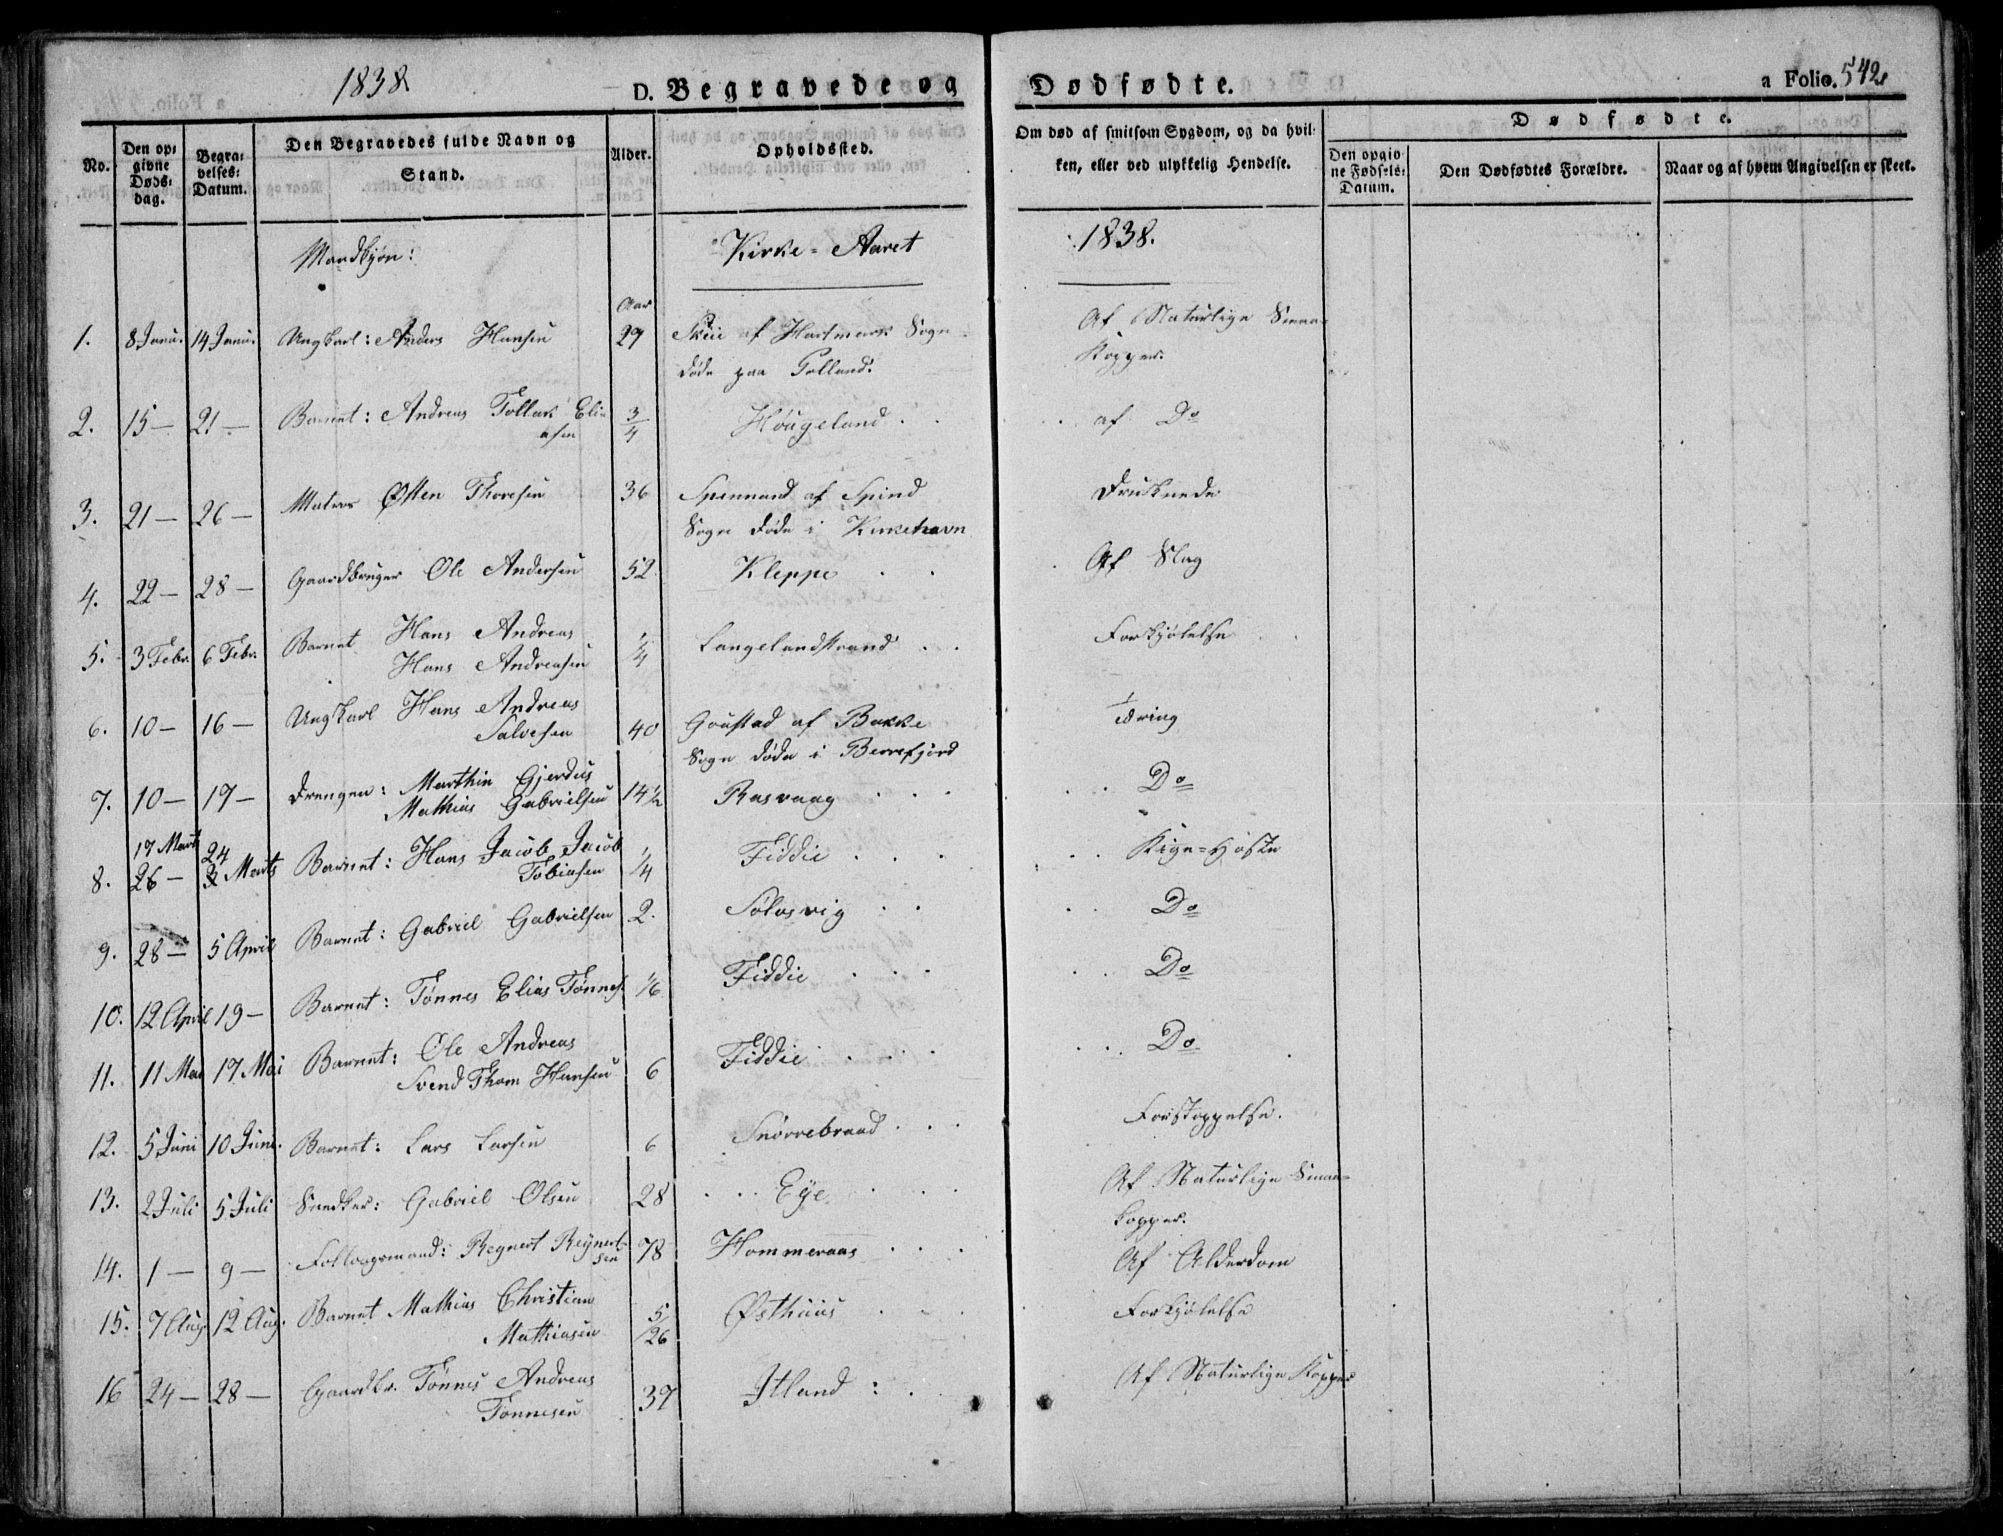 1838
D. Begravede og Dødfødte.
a Folio. 542
No.
Den opgivne Dødsdag.
Begravelses-Datum.
Den Begravedes fulde Navn og Stand.
Alder.
Opholdssted.
Om død af smitsom Sygdom, og da hvilken, eller ved ulykkelig Hendelse.
Dødfødte.
Den opgivne Fødsels-Datum.
Den Dødfødtes Forældre.
Naar og af hvem Angivelsen er skeet.
Mandkjøn: Kirke-Aaret 1838.
Aar
1. 8 Janu. 14 Janu. Ungkarl: Anders Hansen 29 Skeie af Hartmark Sogn Af Naturlige Smaa-
døde paa Polland. Kopper.
2. 15 — 21 — Barnet: Andreas Tollak Eli- 3/4 Høugeland . . af Do
asen
3. 21 — 26 — Matros Østen Thoresen 36 Spennand af Spind Druknede
Sogn døde i Kirkehavn
4. 22 — 28 — Gaardbruger Ole Andersen 52 Kleppe . . Af Slag
5. 3 Febr. 6 Febr. Barnet Hans Andreas 1/4 Langelandstrand . . Forkjølelse
Hans Andreasen
6. 10 — 16 — Ungkarl Hans Andreas 40 Goustad af Bakke Tæring
Salvesen Sogn døde i Berrefjord
7. 10 — 19 — Drengen: Marthin Gjerdus 14 1/2 Rasvaag . . . Do
Mathias Gabrielsen
17 Marts 24
8. 26 — 3 Marts Barnet: Hans Jacob Jacob 1/4 Fiddie . . . Kige-Hoste
Tobiasen
9. 28 — 5 April Barnet: Gabriel Gabrielsen 2. Sølosvig . . Do
10. 12 April 19 — Barnet: Tønnes Elias Tønnes. 1/6 Fiddie . . . Do
11. 11 Mai 17 Mai Barnet: Ole Andreas 6 Fiddie . . . . Do
Svend Thom Hansen
12. 5 Juni 10 Juni. Barnet: Lars Larsen 6 Snørrebraad . . . Forstoppelse.
13. 2 Juli 5 Juli Snedker: Gabriel Olsen 28 Eye Af Naturlige Smaa-
kopper.
14. 1 — 9 — Follaugsmand: Reynert Reynert- 78 Hommeraas . . . Af Alderdom
sen
15. 7 Aug. 12 Aug. Barnet Mathias Christian 5/26 Østhuus . . . Forkjølelse
Mathiasen
16 24 — 28 — Gaardbr. Tønnes Andreas 37 Itland : . Af Naturlige Kopper
Tønnesen